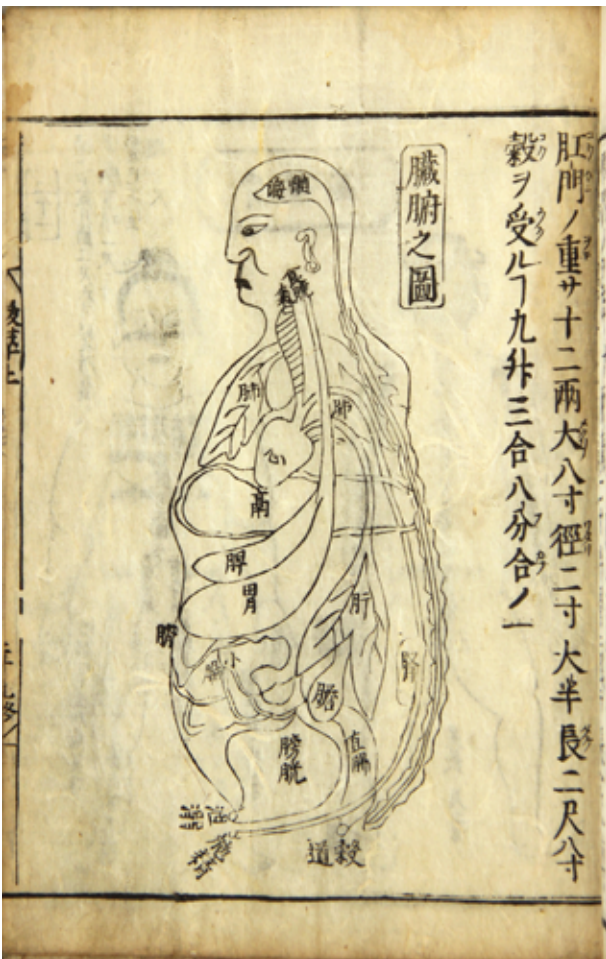 肛門ノ重サ十二兩大八寸徑二寸大半長二尺八寸
穀ヲ受ルヿ九升三合八分合ノ一
臓腑之圖
髓海
肺
肺
心
鬲
脾
胃
肝
腎
臍
小腸
膽
膀胱
直腸
穀道